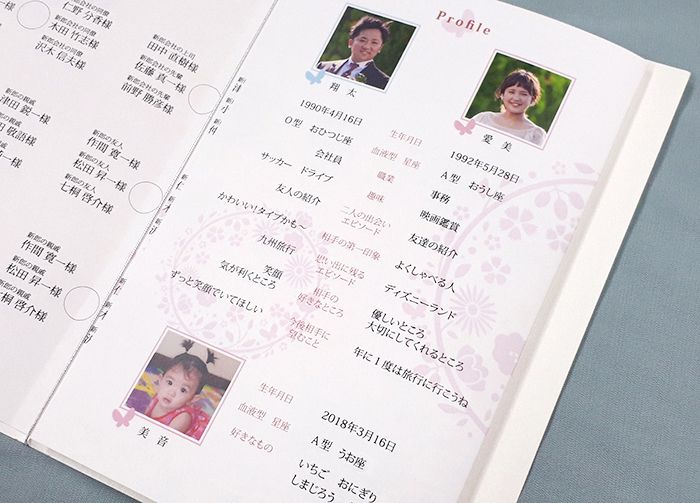 新郎会社の同僚
仁野 分香様
新郎会社の同僚
木田 竹志様
新郎会社の同僚
沢木 信夫様
新郎会社の上司
田中 直樹様
新郎会社の先輩
佐藤 真一様
新郎会社の先輩
前野 勝彦様
新郎の親戚
津田 鋭一様
新郎の友人
作間 寛一様
新郎の友人
松田 昇一様
新郎の友人
七桐 啓介様
新郎の親戚
作間 寛一様
新郎の親戚
松田 昇一様
新郎の親戚
七桐 啓介様
Profile
翔太
愛美
1990年4月16日
生年月日
1992年5月28日
O型 おひつじ座
血液型 星座
A型 おうし座
会社員
職業
事務
サッカー ドライブ
趣味
映画鑑賞
友人の紹介
二人の出会い
エピソード
友達の紹介
かわいい!タイプかも～
相手の第一印象
よくしゃべる人
九州旅行
思い出に残る
エピソード
ディズニーランド
笑顔
気が利くところ
相手の
好きなところ
優しいところ
大切にしてくれるところ
ずっと笑顔でいてほしい
今後相手に
望むこと
年に1度は旅行に行こうね
美音
生年月日
2018年3月16日
血液型 星座
A型 うお座
好きなもの
いちご おにぎり
しまじろう